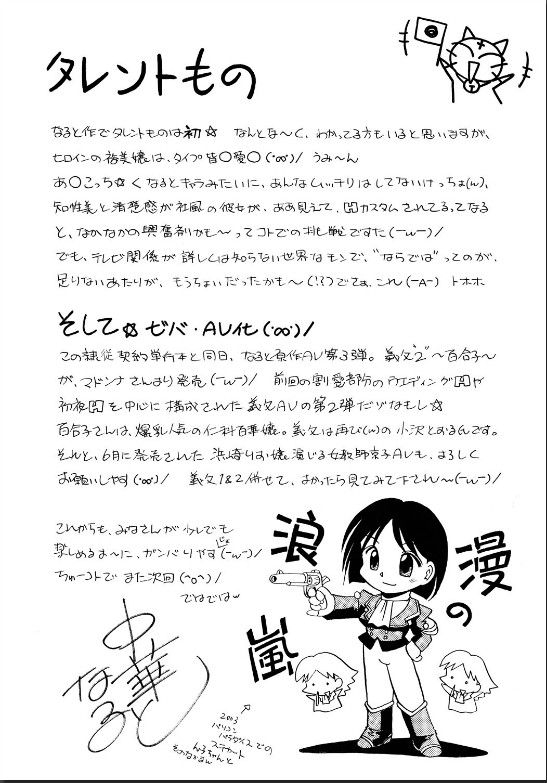 タレントもの
なると作でタレントものは初☆ なんとな〜く、わかってる方もいると思いますが、
ヒロインの裕美嬢は、タイプ皆○愛○(･∞･)/ うみ〜ん
あ○こっち☆くなるとキャラみたいに、あんなしっちりはしてないけっちょ(w)、
知性美と清楚感が社風の彼女が、ああ見えて、図カスタムされてるってなる
と、なかなかの興奮剤かも〜ってコトでの挑戦ですた(ーωー)/
でも、テレビ関係が詳しくは知らない世界なモンで、"ならでは"ってのが、
足りないあたりが、もうちょいだったかも〜(!?)でてぁ、これ(ーAー) トホホ
そして☆ゼバ・AV化(･∞･)/
この隷従契約単行本と同日、なると原作AV第3弾。義父"2"〜百合子〜
が、マドンナさんより発売(ーωー)/ 前回の割愛者防のウエディング図や
初夜図を中心に構成された義父AVの第2弾だゾなもし☆
百合子さんは、爆乳人気の仁科百華嬢。義父は再び(w)の小沢とおるんです。
それと、6月に発売された浜崎りお嬢演じる女教師京子AVも、よろしく
お願いしやす(･∞･)/ 義父1&2併せて、よかったら見てみて下さん〜(ーωー)/
これからも、みなさんが少しでも
楽しめるよ〜に、ガンバりやす(ーωー)/
ちゅーコトで また次回(^o^)/
ではではw
浪漫の嵐
中華
なると
2003